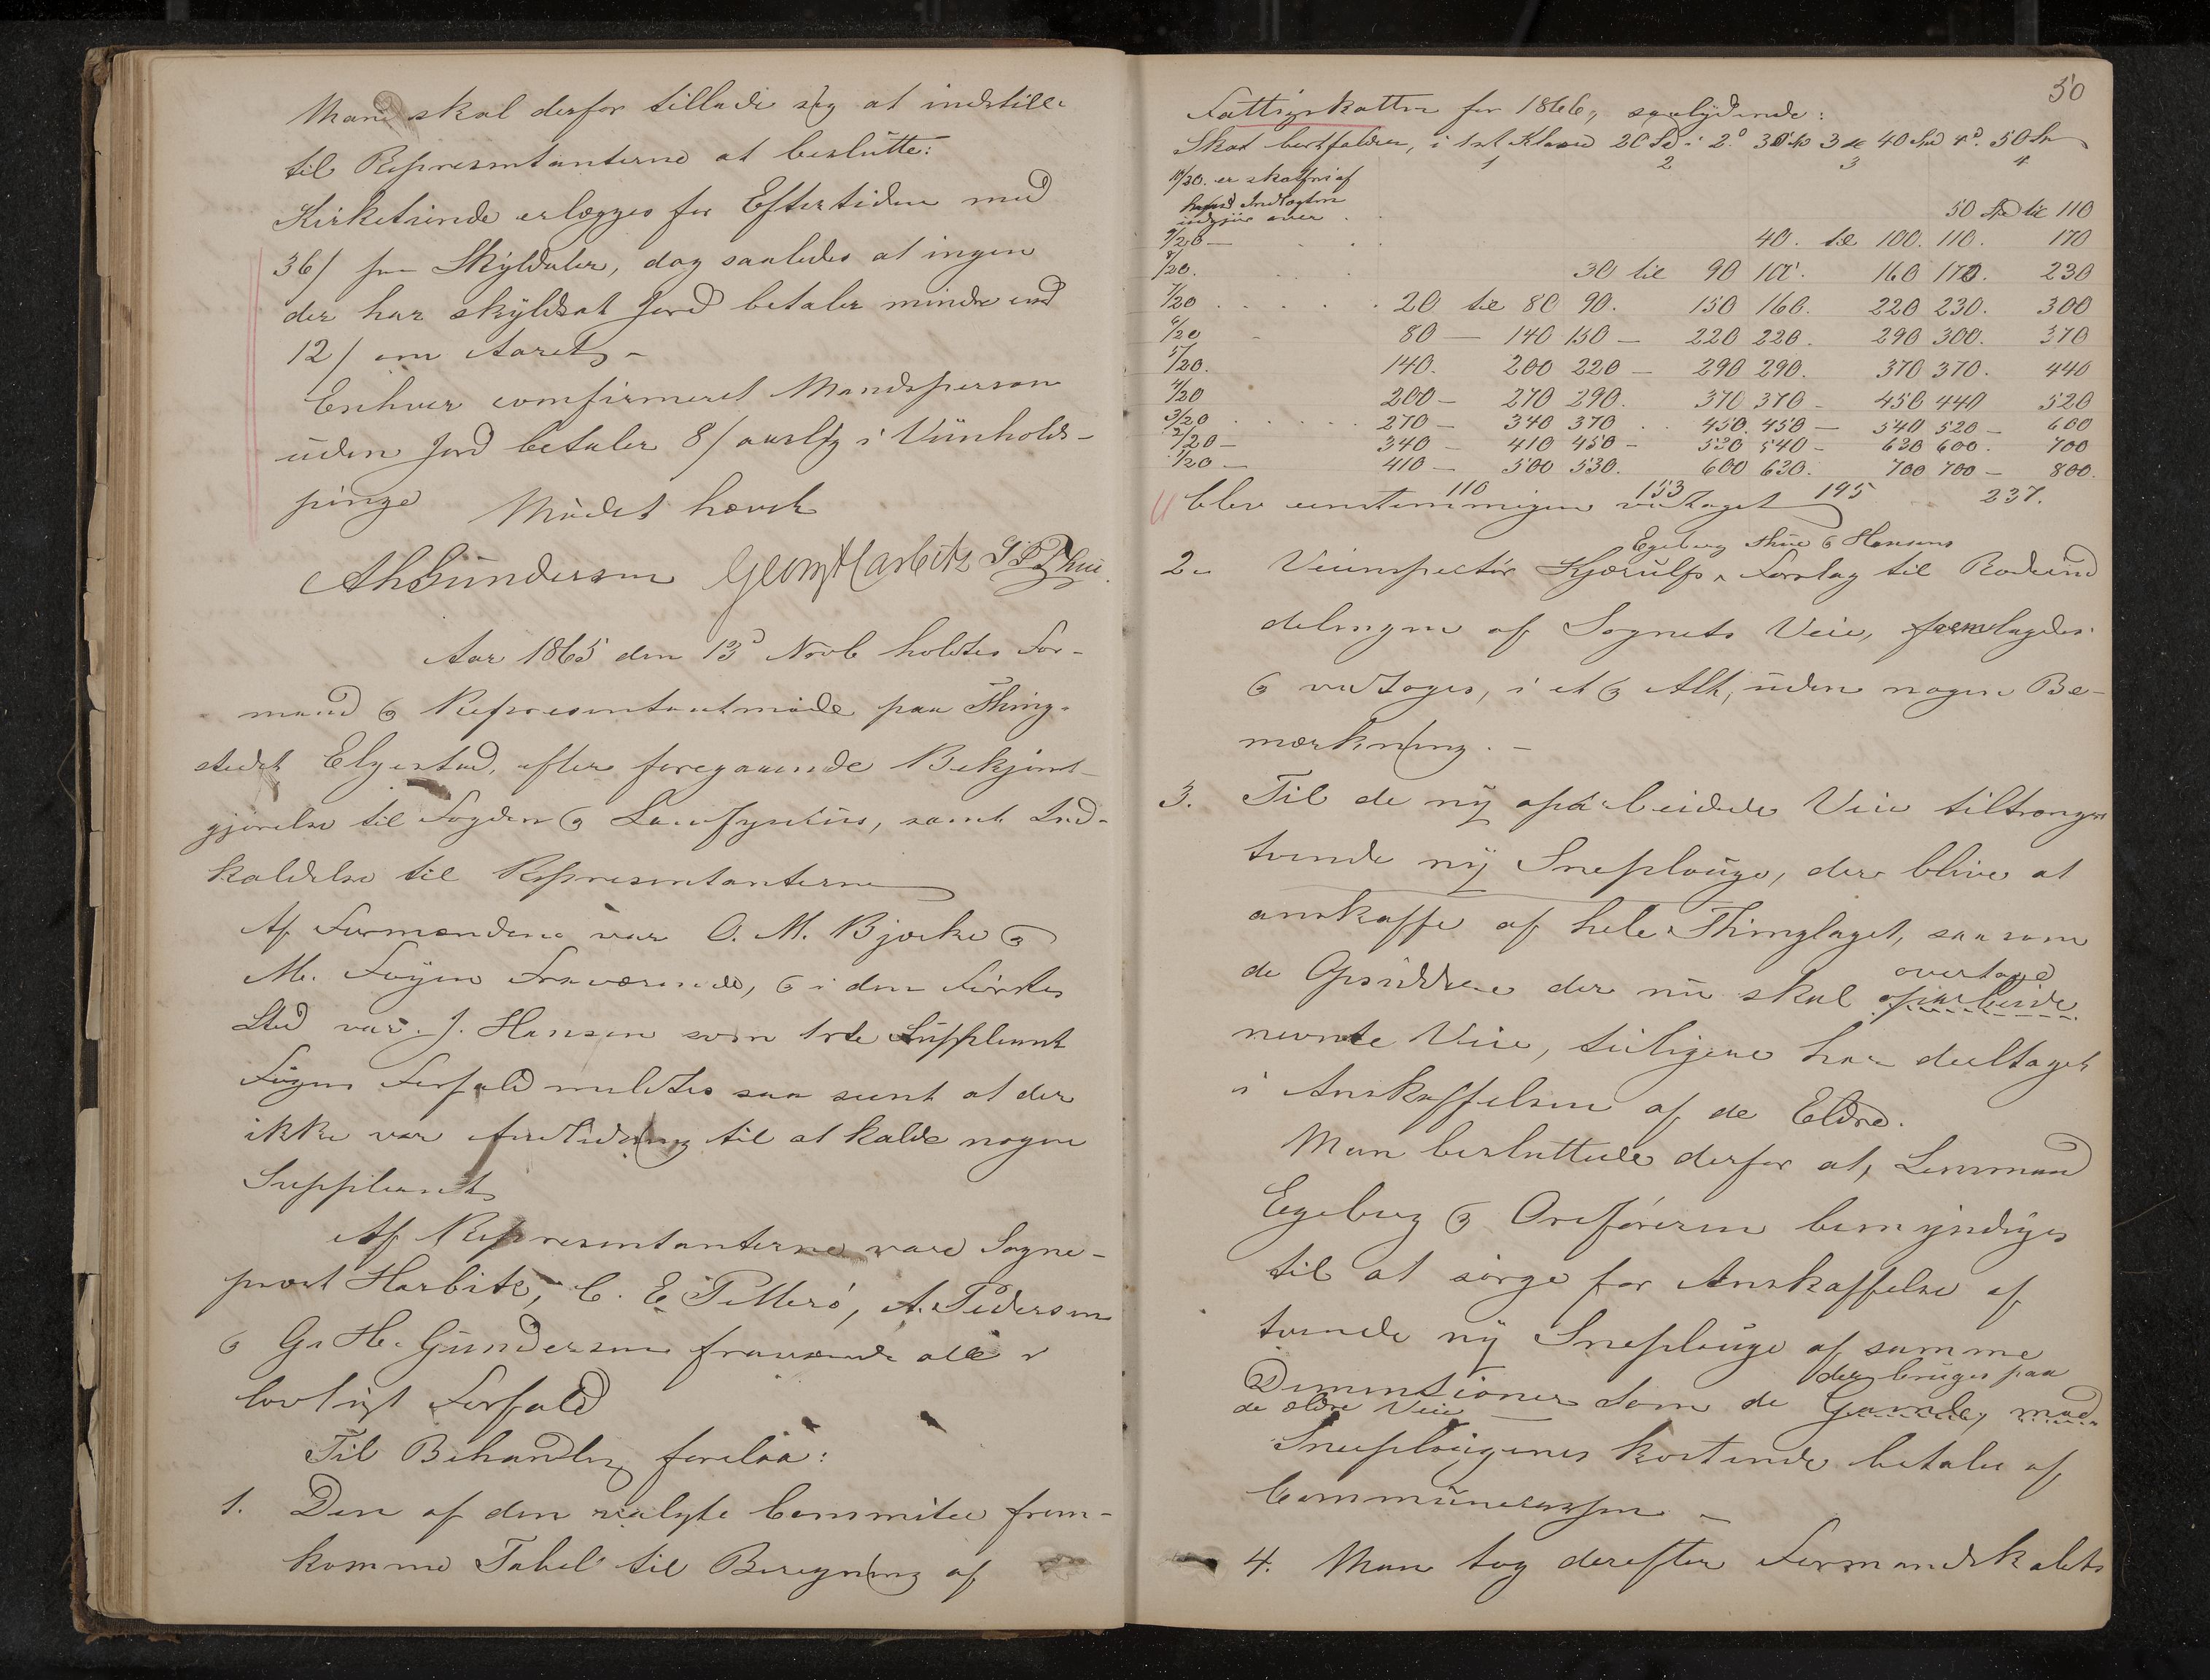 Man skal derfor tillade sig at indstille
til Representanterne at beslutte:
Kirketiende erlægges for Eftertiden med
36/ pr Skylddaler, dog saaledes at ingen
der har skyldsat Jord betaler mindre end
12/ om Aaret –
Enhver confirmeret Mandsperson
uden Jord betaler 8/ aarlig i Viinholds-
pinge Mødet hævet
A H Gundersen Georg Harbitz Thue
Aar 1865 den 13d Novb holdtes For-
mand & Representantmøde paa Thing-
stedet Elgestad, efter foregaaende Bekjent-
gjørelse til Fogden &, samt Ind-
kaldelse til Representanterne
Af Formændene var O. M. Bjerke &
M. Føyen Fraværende, & i den Førstes
Sted var J. Hansen som 1ste Suppleant
Føyens Forfald meldtes saa seent at der
ikke var til at kalde nogen
Suppleant
Af Representanterne vare Sogne-
prest Harbitz, C. E. Petterø, A. Pedersen
& G. H. Gundersen fraværende alle i
lovligt Forfald
Til Behandling forelaa:
1. Den af den valgte Commitee frem-
komne Tabel til Beregning af
50
Fattigskatten for 1866, saalydende:
Skat bortfalder, i 1st Klasse 20 Sp i 2d 30 Sp 3de 40 Spd 4d 50 Sp
1 2 3 4
10/20. er skattfri af
Indtægten
indtil over . . 50 Spd til 110
9/20 — . . . 40. til 100. 110. 170
8/20. . . 30 til 90 100. 160 170. 230
7/20 . . . . . 20 til 80 90. 150 160. 220 230. 300
6/20 - 80 — 140 150 — 220 220. 290 300. 370
5/20. 140. 200 220 — 290 290. 370 370. 440
4/20 200 — 270 290. 370 370 – 450 440 520
3/20 . . . . . . 270 — 340 370 . . 450. 450 — 540 520 — 600
2/20 — 340 — 410 450 – 530 540 – 630 600. 700
1/20 — 410 — 500 530. 600 630. 700 700 — 800.
110 153 195 237.
blev eenstemmigen vedtaget
Egeberg Thue & Hansens
2. Veiinspectør Kjerulfs Forslag til Rodeind
delingen af Sognets Veie, foredragedes
& vedtoges, i et & Alt, uden nogen Be-
mærkning. –
3. Til de ny oparbeidede Veie tiltrænges
tvende ny Sneplouge, der blive at
anskaffe af hele Thinglaget, saasom
de Opsiddere der nu skal oparbeide
overtage
nevnte Veie, tidligere har deeltaget
i Anskaffelsen af de Eldre.
Man besluttede derfor at, Lensmand
Egeberg & Ordføreren bemyndiges
til at sørge for Anskaffelse af
tvende ny Sneplouge af samme
der bruges paa
Dimensioner som de Gamle, med
de ældre Veie
Sneplougenes kostende betales af
Communecassen –
4. Man tog derefter Formandskabets